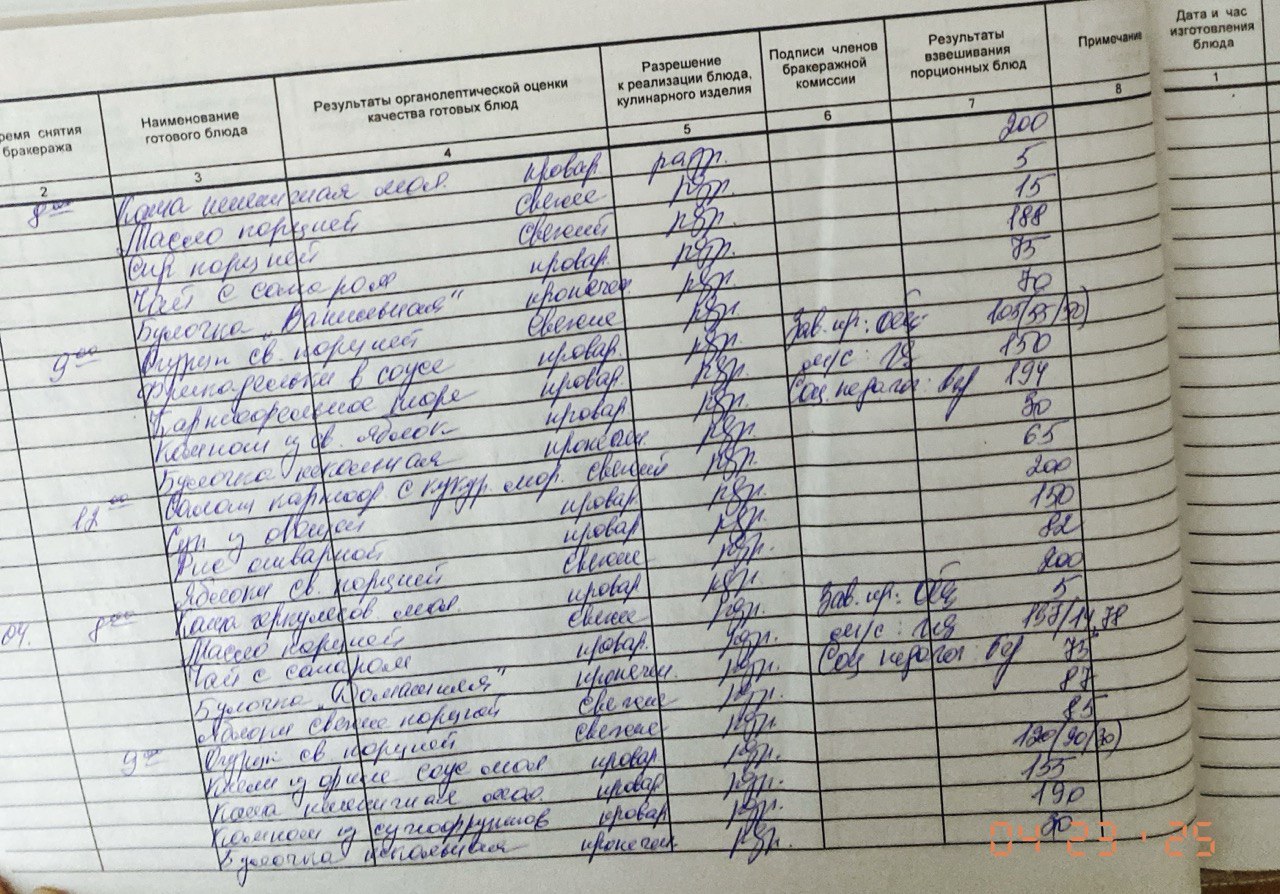 Дата и час изготовления блюда
1
ремя снятия бракеража
Наименование готового блюда
Результаты органолептической оценки качества готовых блюд
Разрешение к реализации блюда, кулинарного изделия
Подписи членов бракеражной комиссии
Результаты взвешивания порционных блюд
Примечание
2 3 4 5 6 7 8
8 00 Каша пшеничная мол. провар. разр. 200
Масло порцией свежее рзр. 5
Сыр порцией свежий рзр. 15
Чай с сахаром провар. рзр. 188
Булочка „Ванильная“ пропечен рзр. 75
9 00 Огурец св. порцией свежие рзр. 70
Фрикадельки в соусе провар. рзр. Зав. пр.: 105/55/50)
Картофельное пюре провар. рзр. м/с: 150
Компот из св. яблок провар рзр. Соц. педагог: 194
Булочка школьная пропечен. рзр. 30
12 00 Салат картоф. с кукур. мор. свежий рзр. 65
Суп из овощей провар. рзр. 200
Рис отварной провар рзр. 150
Яблоки св. порцией свежие рзр. 82
04. 8 00 Каша геркулесов мол провар рзр. 200
Масло порцией свежее рзр. Зав. пр.: 5
Чай с сахаром провар. рзр. м/с:
Булочка „Домашняя“ пропечен. рзр. Соц. педагог: 75
Яблоки свежие порцией свежие рзр. 87
9 00 Огурец св. порцией свежие рзр. 85
соус мол провар рзр. 120/90/30)
Каша пшеничная провар рзр. 155
Компот из сухофруктов провар рзр. 190
Булочка школьная пропечен рзр. 30
04 23 '25